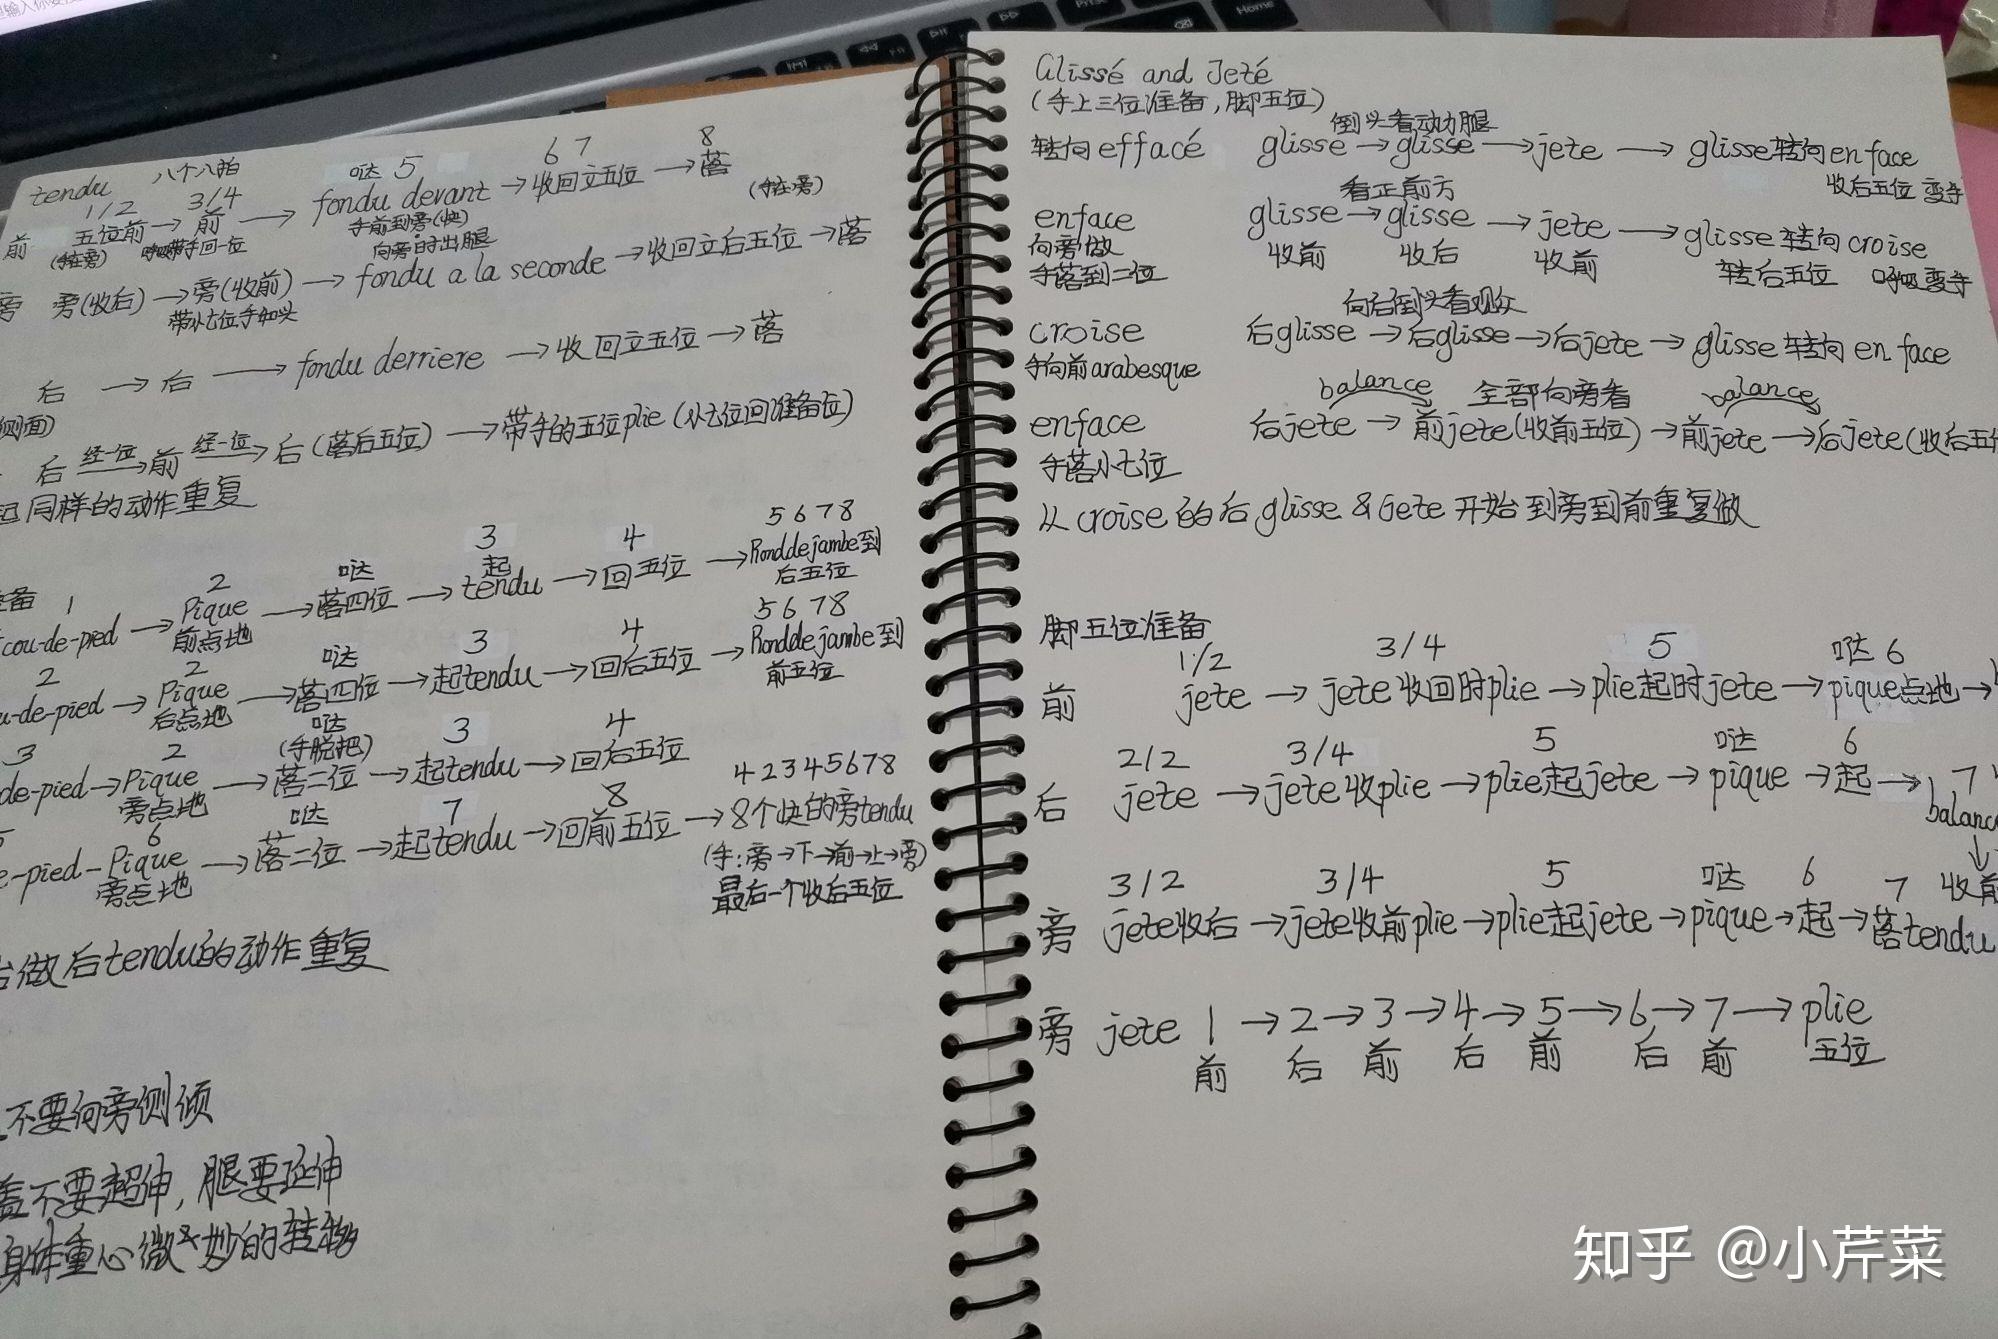 tendu 八个八拍
1/2 3/4 哒 5 6 7 8
前 五位前→前→fondu devant→收回立五位→落
(手在旁) 呼吸带手回一位 手前到旁(快) (手在旁)
向旁时出腿
旁 旁(收后)→旁(收前)→fondu a la seconde→收回立后五位→落
带小七位手和头
后→后→fondu derriere→收回立五位→落
侧面)
后 经一位→前 经一位→后(落后五位)→带手的五位plie(小七位回准备位)
起同样的动作重复
准备 1 2 哒 3 4 5 6 7 8
cou-de-pied→Pique→落四位→起tendu→回五位→Rond de jambe到
前点地 后五位
2 2 哒 3 4 5 6 7 8
-de-pied→Pique→落四位→起tendu→回后五位→Rond de jambe到
后点地 前五位
3 2 哒 3 4
(手脱把)
de-pied→Pique→落二位→起tendu→回后五位
旁点地
6 哒 7 8 4 2 3 4 5 6 7 8
e-pied-Pique→落二位→起tendu→回前五位→8个快的旁tendu
旁点地 (手:旁→下→前→上→旁)
最后一个收后五位
做后tendu的动作重复
不要向旁侧倾
盖不要超伸,腿要延伸
身体重心微妙的转移
Glissé and Jeté
(手上三位准备,脚五位)
倒头看动力腿
转向effacé glisse→glisse→jete→glisse转向en face
收后五位 变手
看正前方
enface glisse→glisse→jete→glisse转向croise
向旁做 收前 收后 收前 转后五位 呼吸变手
手落到二位
向后倒头看观众
croise 后glisse→后glisse→后jete→glisse转向en face
手向前arabesque
balance 全部向旁看 balance
enface 后jete→前jete(收前五位)→前jete→后jete(收后五位
手落小七位
从croise的后glisse & Gete开始到旁到前重复做
脚五位准备
1/2 3/4 5 哒 6
前 jete→jete收回时plie→plie起时jete→pique点地→
2/2 3/4 5 哒 6
后 jete→jete收plie→plie起jete→pique→起→7
balance
↓
3/2 3/4 5 哒 6 7 收前
旁 jete收后→jete收前plie→plie起jete→pique→起→落tendu
旁 jete 1→2→3→4→5→6→7→plie
前 后 前 后 前 后 前 五位
知乎 @小芹菜